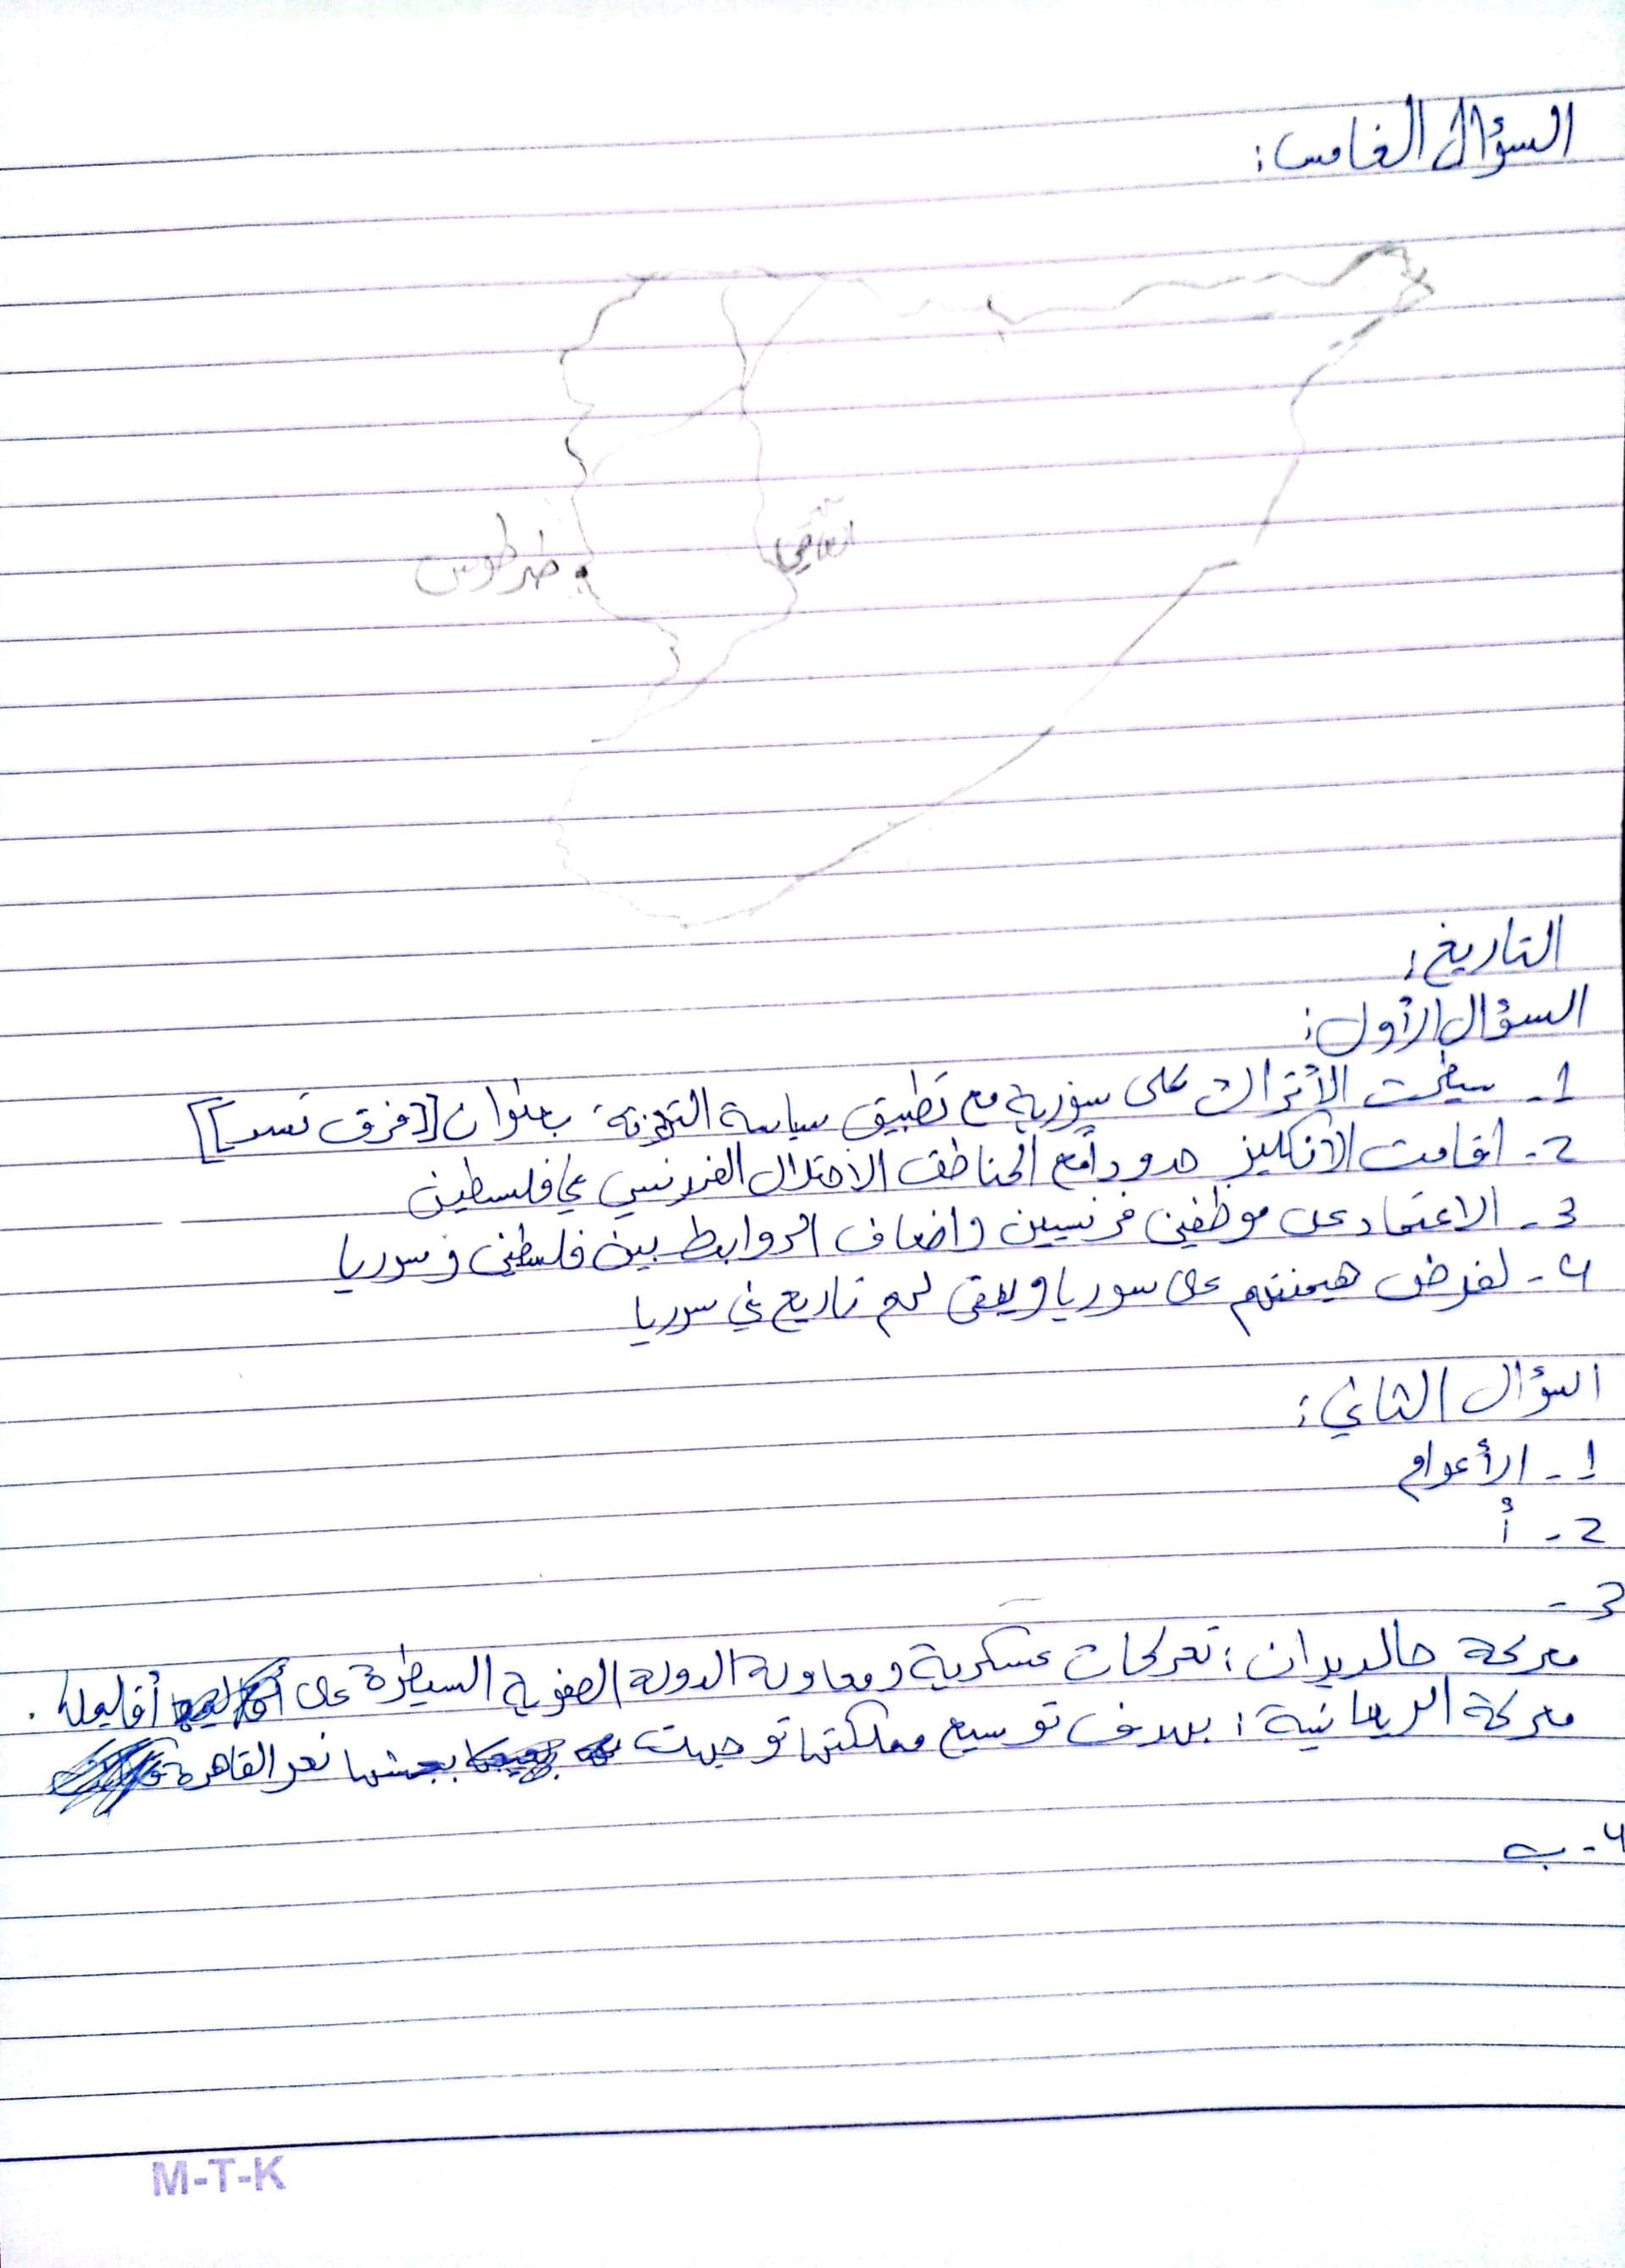 السؤال الخامس:
العاصي
طرطوس
التاريخ:
السؤال الأول:
1- سيطرت الأتراك على سورية مع تطبيق سياسة التجزئة بعنوان [[فرق تسد]]
2- اقامت الانكليز حدود مع المناطق الاحتلال الفرنسي في فلسطين
3- الاعتماد على موظفين فرنسيين واضعاف الروابط بين فلسطين و سوريا
4- لفرض هيمنتهم على سوريا ويبقى لهم تاريخ في سوريا
السؤال الثاني:
1- الأعوام
2- أ
3-
معركة جالديران: تحركات عسكرية ومحاولة الدولة الصفوية السيطرة على أقاليمها.
معركة الريدانية: بهدف توسيع مملكتها توجهت بجيشها نحو القاهرة
4- ب
M-T-K